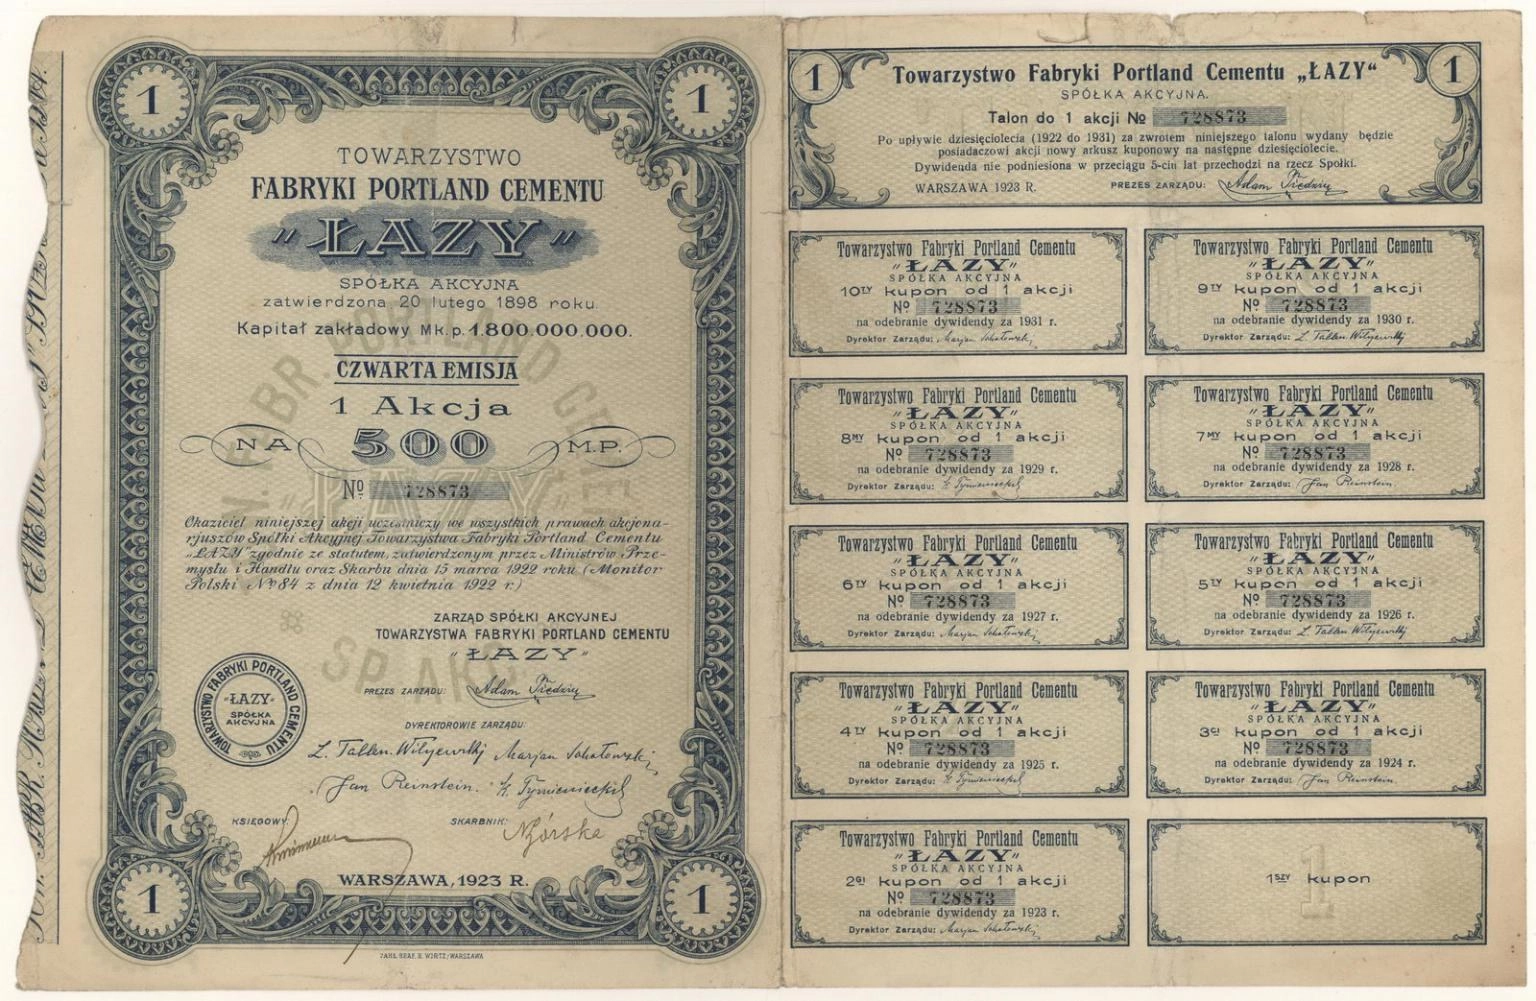 1
1
TOWARZYSTWO
FABRYKI PORTLAND CEMENTU
„ŁAZY”
SPÓŁKA AKCYJNA
zatwierdzona 20 lutego 1898 roku.
Kapitał zakładowy Mk. p. 1.800.000.000.
CZWARTA EMISJA
1 Akcja
NA 500 M.P.
No 728873
Okaziciel niniejszej akcji uczestniczy we wszystkich prawach akcjona-
rjuszów Spółki Akcyjnej Towarzystwa Fabryki Portland Cementu
„ŁAZY” zgodnie ze statutem, zatwierdzonym przez Ministrów Prze-
mysłu i Handlu oraz Skarbu dnia 15 marca 1922 roku (Monitor
Polski № 84 z dnia 12 kwietnia 1922 r.)
ZARZĄD SPÓŁKI AKCYJNEJ
TOWARZYSTWA FABRYKI PORTLAND CEMENTU
„ŁAZY”
PREZES ZARZĄDU:
DYREKTOROWIE ZARZĄDU:
Marjan Sokołowski
Jan Reinstein.
TOWARZYSTWO FABRYKI PORTLAND CEMENTU
„ŁAZY”
SPÓŁKA
AKCYJNA
KSIĘGOWY:
SKARBNIK: Górska
WARSZAWA, 1923 R.
1
1
ZAKŁ. GRAF. B. WIRTZ, WARSZAWA
1
1
Towarzystwo Fabryki Portland Cementu „ŁAZY”
SPÓŁKA AKCYJNA.
Talon do 1 akcji № 728873
Po upływie dziesięciolecia (1922 do 1931) za zwrotem niniejszego talonu wydany będzie
posiadaczowi akcji nowy arkusz kuponowy na następne dziesięciolecie.
Dywidenda nie podniesiona w przeciągu 5-ciu lat przechodzi na rzecz Spółki.
WARSZAWA 1923 R. PREZES ZARZĄDU:
Towarzystwo Fabryki Portland Cementu
„ŁAZY”
SPÓŁKA AKCYJNA
10TY kupon od 1 akcji
№ 728873
na odebranie dywidendy za 1931 r.
Dyrektor Zarządu: Marjan Sokołowski
Towarzystwo Fabryki Portland Cementu
„ŁAZY”
SPÓŁKA AKCYJNA
9TY kupon od 1 akcji
№ 728873
na odebranie dywidendy za 1930 r.
Dyrektor Zarządu:
Towarzystwo Fabryki Portland Cementu
„ŁAZY”
SPÓŁKA AKCYJNA
8MY kupon od 1 akcji
№ 728873
na odebranie dywidendy za 1929 r.
Dyrektor Zarządu:
Towarzystwo Fabryki Portland Cementu
„ŁAZY”
SPÓŁKA AKCYJNA
7MY kupon od 1 akcji
№ 728873
na odebranie dywidendy za 1928 r.
Dyrektor Zarządu: Jan Reinstein.
Towarzystwo Fabryki Portland Cementu
„ŁAZY”
SPÓŁKA AKCYJNA
6TY kupon od 1 akcji
№ 728873
na odebranie dywidendy za 1927 r.
Dyrektor Zarządu: Marjan Sokołowski
Towarzystwo Fabryki Portland Cementu
„ŁAZY”
SPÓŁKA AKCYJNA
5TY kupon od 1 akcji
№ 728873
na odebranie dywidendy za 1926 r.
Dyrektor Zarządu:
Towarzystwo Fabryki Portland Cementu
„ŁAZY”
SPÓŁKA AKCYJNA
4TY kupon od 1 akcji
№ 728873
na odebranie dywidendy za 1925 r.
Dyrektor Zarządu:
Towarzystwo Fabryki Portland Cementu
„ŁAZY”
SPÓŁKA AKCYJNA
3CI kupon od 1 akcji
№ 728873
na odebranie dywidendy za 1924 r.
Dyrektor Zarządu: Jan Reinstein.
Towarzystwo Fabryki Portland Cementu
„ŁAZY”
SPÓŁKA AKCYJNA
2GI kupon od 1 akcji
№ 728873
na odebranie dywidendy za 1923 r.
Dyrektor Zarządu: Marjan Sokołowski
1SZY kupon
1